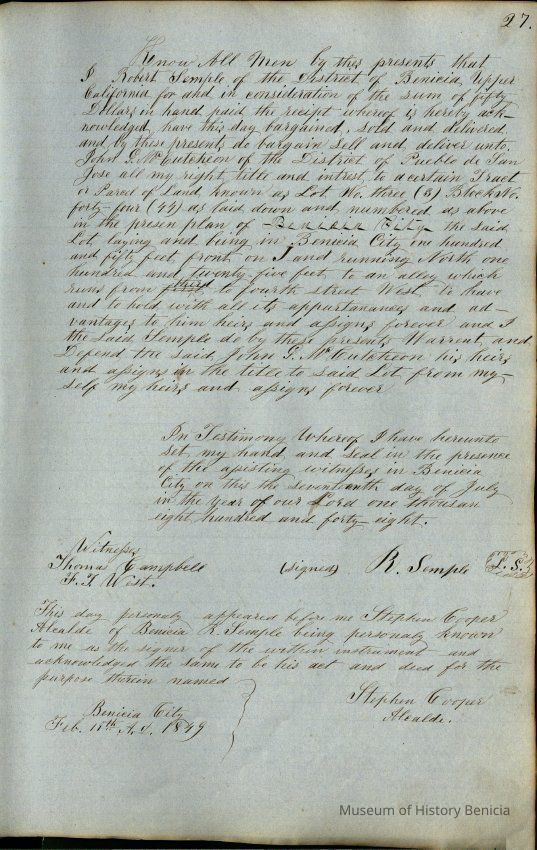 27.
Know All Men by thes presents that
I Robert Semple of the District of Benicia Upper
California for and in consideration of the sum of fifty
Dollars in hand paid the receipt whereof is hereby ack-
nowledged, have this day bargained, sold and delivered,
and by these presents do bargain sell and deliver unto
John G. McCutcheon of the District of Pueblo de San
Jose all my right, title and intrest, to a certain Tract
or Parcel of Land known as Lot No. three (3) Block No.
forty-four (44) as laid down and numbered as above
in the presen plan of Benicia City the said
Lot, laying and being in Benicia City one hundred
and fifty feet front, on I and running North one
hundred and twenty five feet to an alley which
runs from third to fourth street West, to have
and to hold with all its appurtanances and ad-
vantages to him heirs and assigns forever and I
the said Semple do by these presents Warrent, and
Defend the said John G. McCutcheon his heirs
and assigns in the title to said Lot from my-
self my heirs and assigns forever
In Testimony Whereof I have hereunto
set my hand and seal in the presence
of the assisting witnesses in Benicia
City on this the seventeenth day of July
in the year of our Lord one thousan
eight hundred and forty eight.
Witnesses
Thomas Campbell (signed) R. Semple L.S.
F. T. West.
This day personaly appeared before me Stephen Cooper
Alcalde of Benicia R. Semple being personaly known
to me as the signer of the within instrument and
acknowledged the same to be his act and deed for the
purpose therein named
Stephen Cooper
Alcalde.
Benicia City
Feb. 15th A.D. 1849
Museum of History Benicia